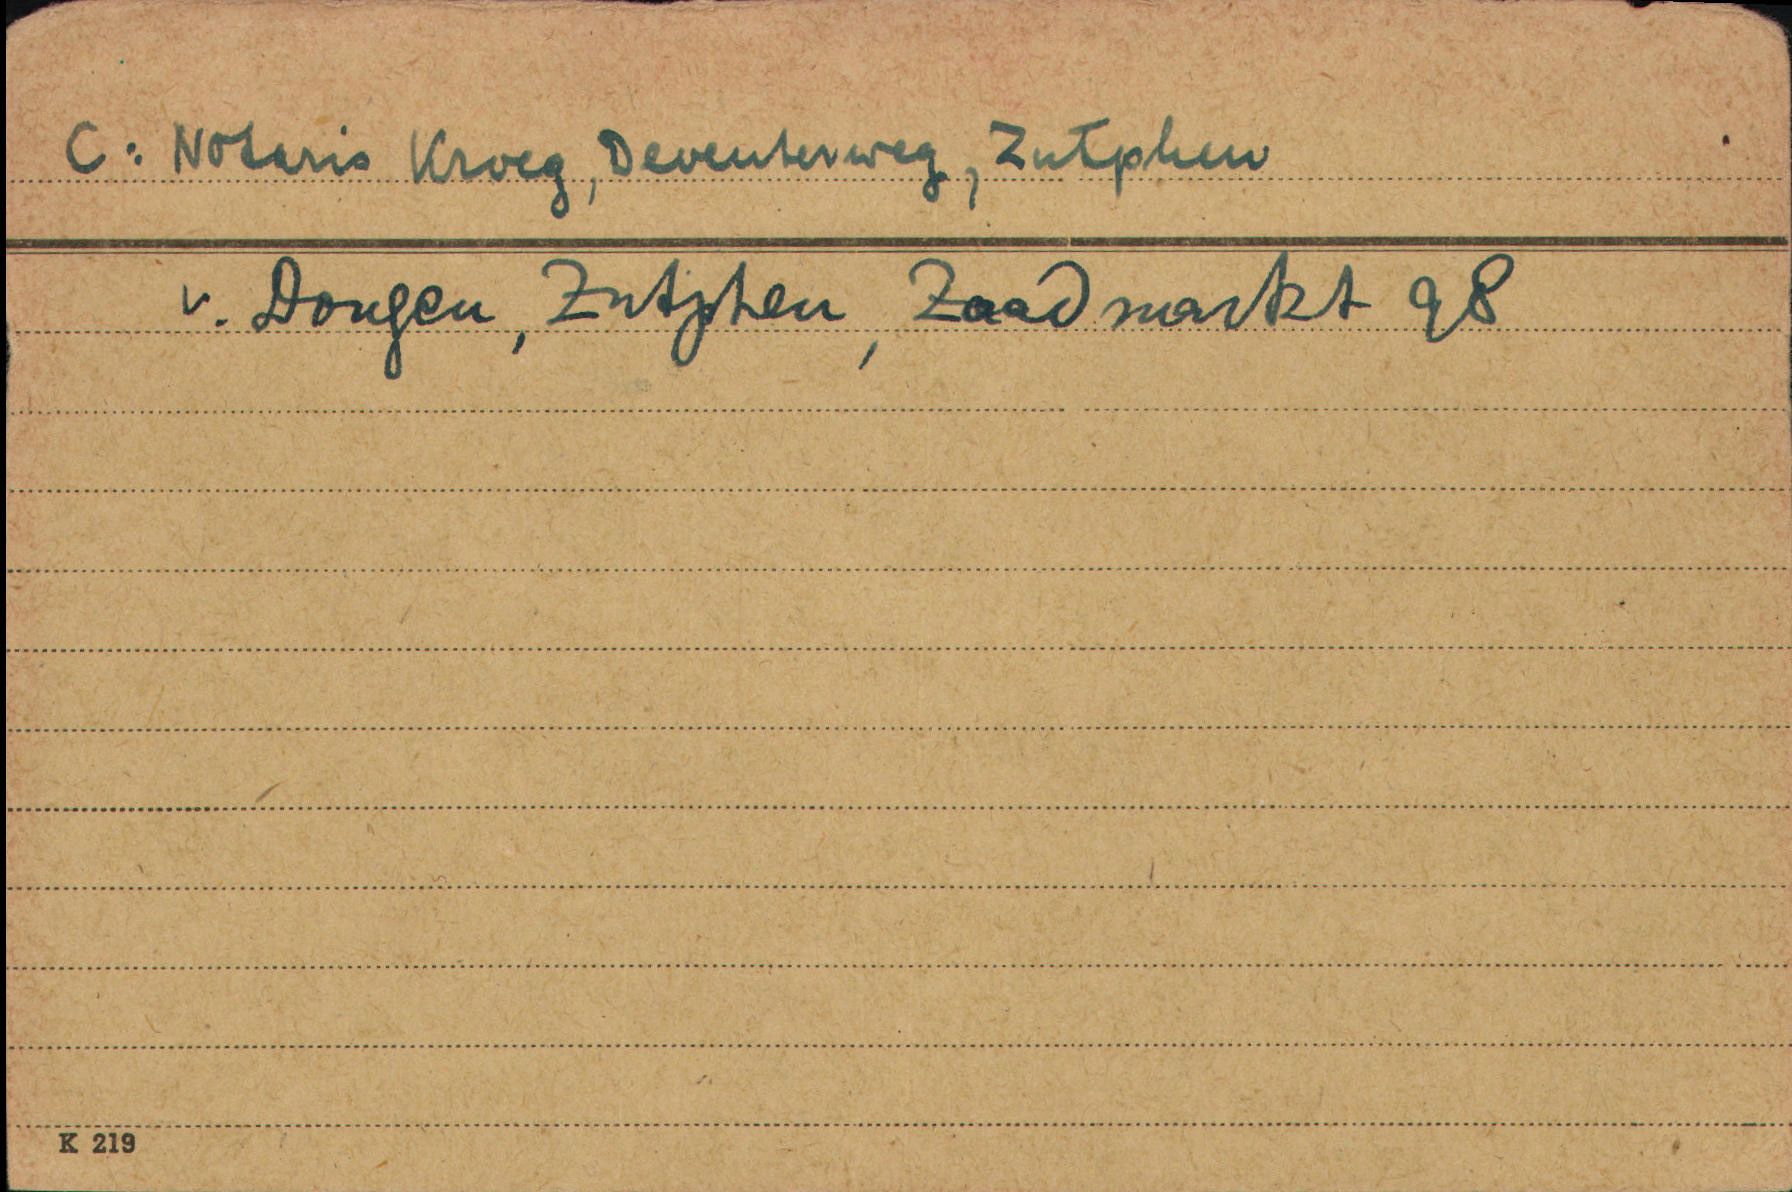 C: Notaris Kroeg, Deventerweg, Zutphen
v. Dongen, Zutphen, Zaadmarkt 98
K 219